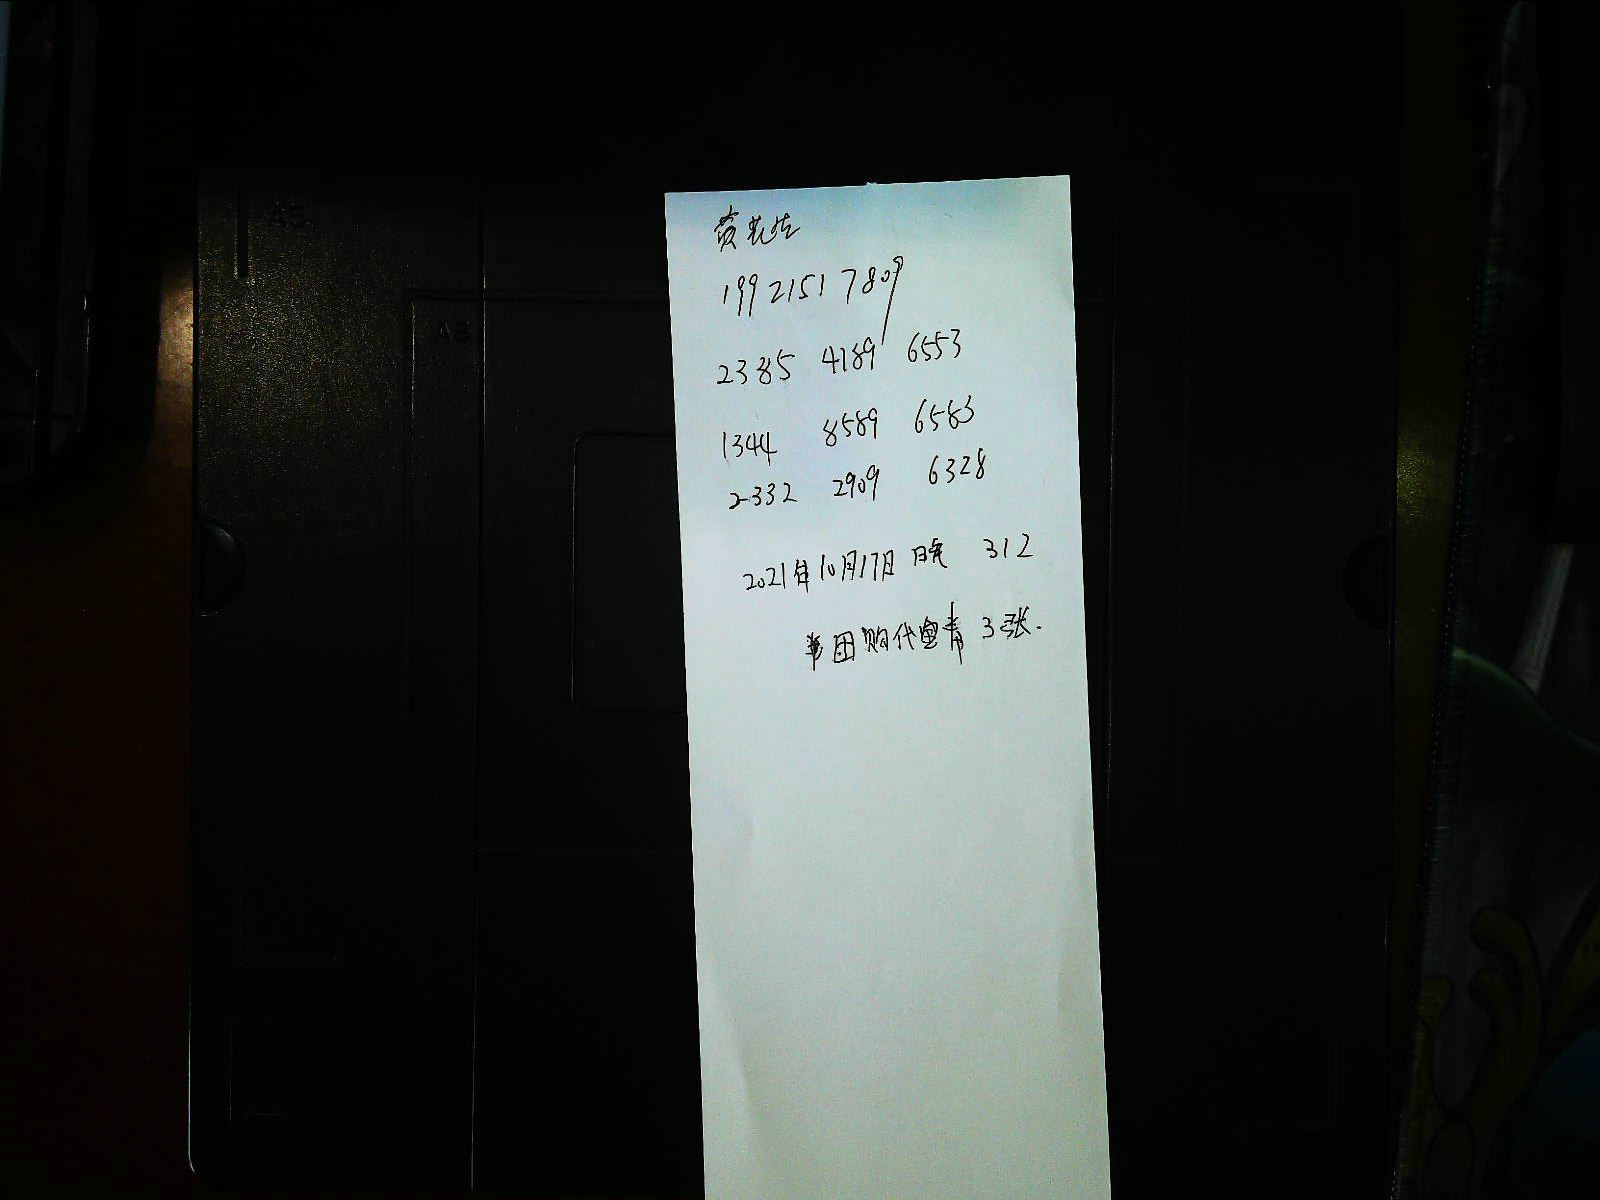 黄先生
19921517809
2385 4189 6553
1344 8589 6583
2332 2909 6328
2021年10月17日 晚 312
美团购代金券 3张.
A5